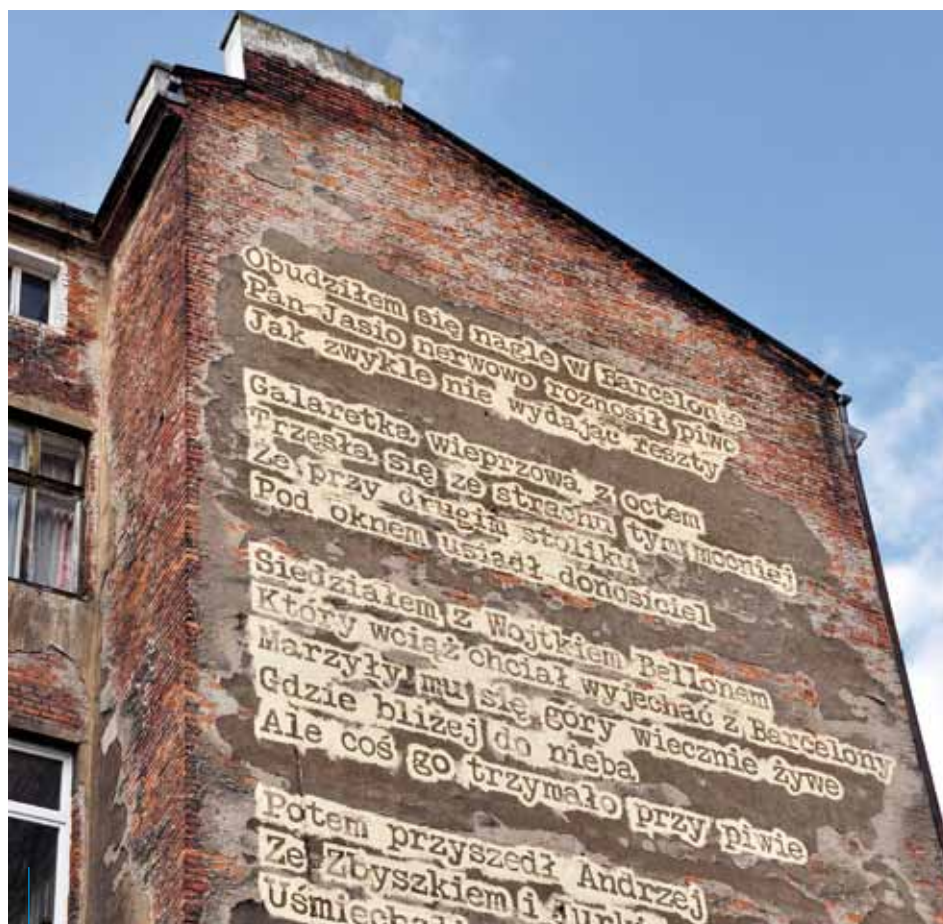 Obudziłem się nagle w Barcelonie
Pan Jasio nerwowo roznosił piwo
Jak zwykle nie wydając reszty
Galaretka wieprzowa z octem
Trzęsła się ze strachu tym mocniej
Że przy drugim stoliku
Pod oknem usiadł donosiciel
Siedziałem z Wojtkiem Bellonem
Który wciąż chciał wyjechać z Barcelony
Marzyły mu się góry wiecznie żywe
Gdzie bliżej do nieba
Ale coś go trzymało przy piwie
Potem przyszedł Andrzej
Ze Zbyszkiem i